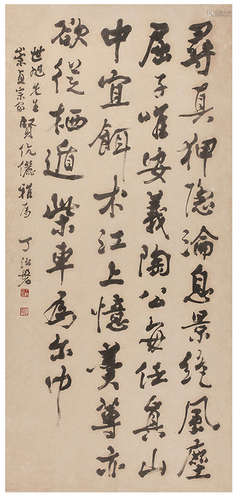 尋真狎隱淪息景絕風塵
屈子唯安義陶公每任真山
中宜餌朮江上憶羹蓴亦
欲從栖遁柴車為尔巾
世旭先生
崇貞宗家賢伉儷雅屬
丁治磐